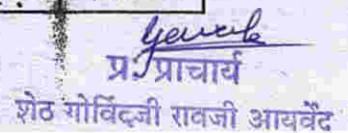 प्र. प्राचार्य
शेठ गोविंदजी रावजी आयुर्वेद